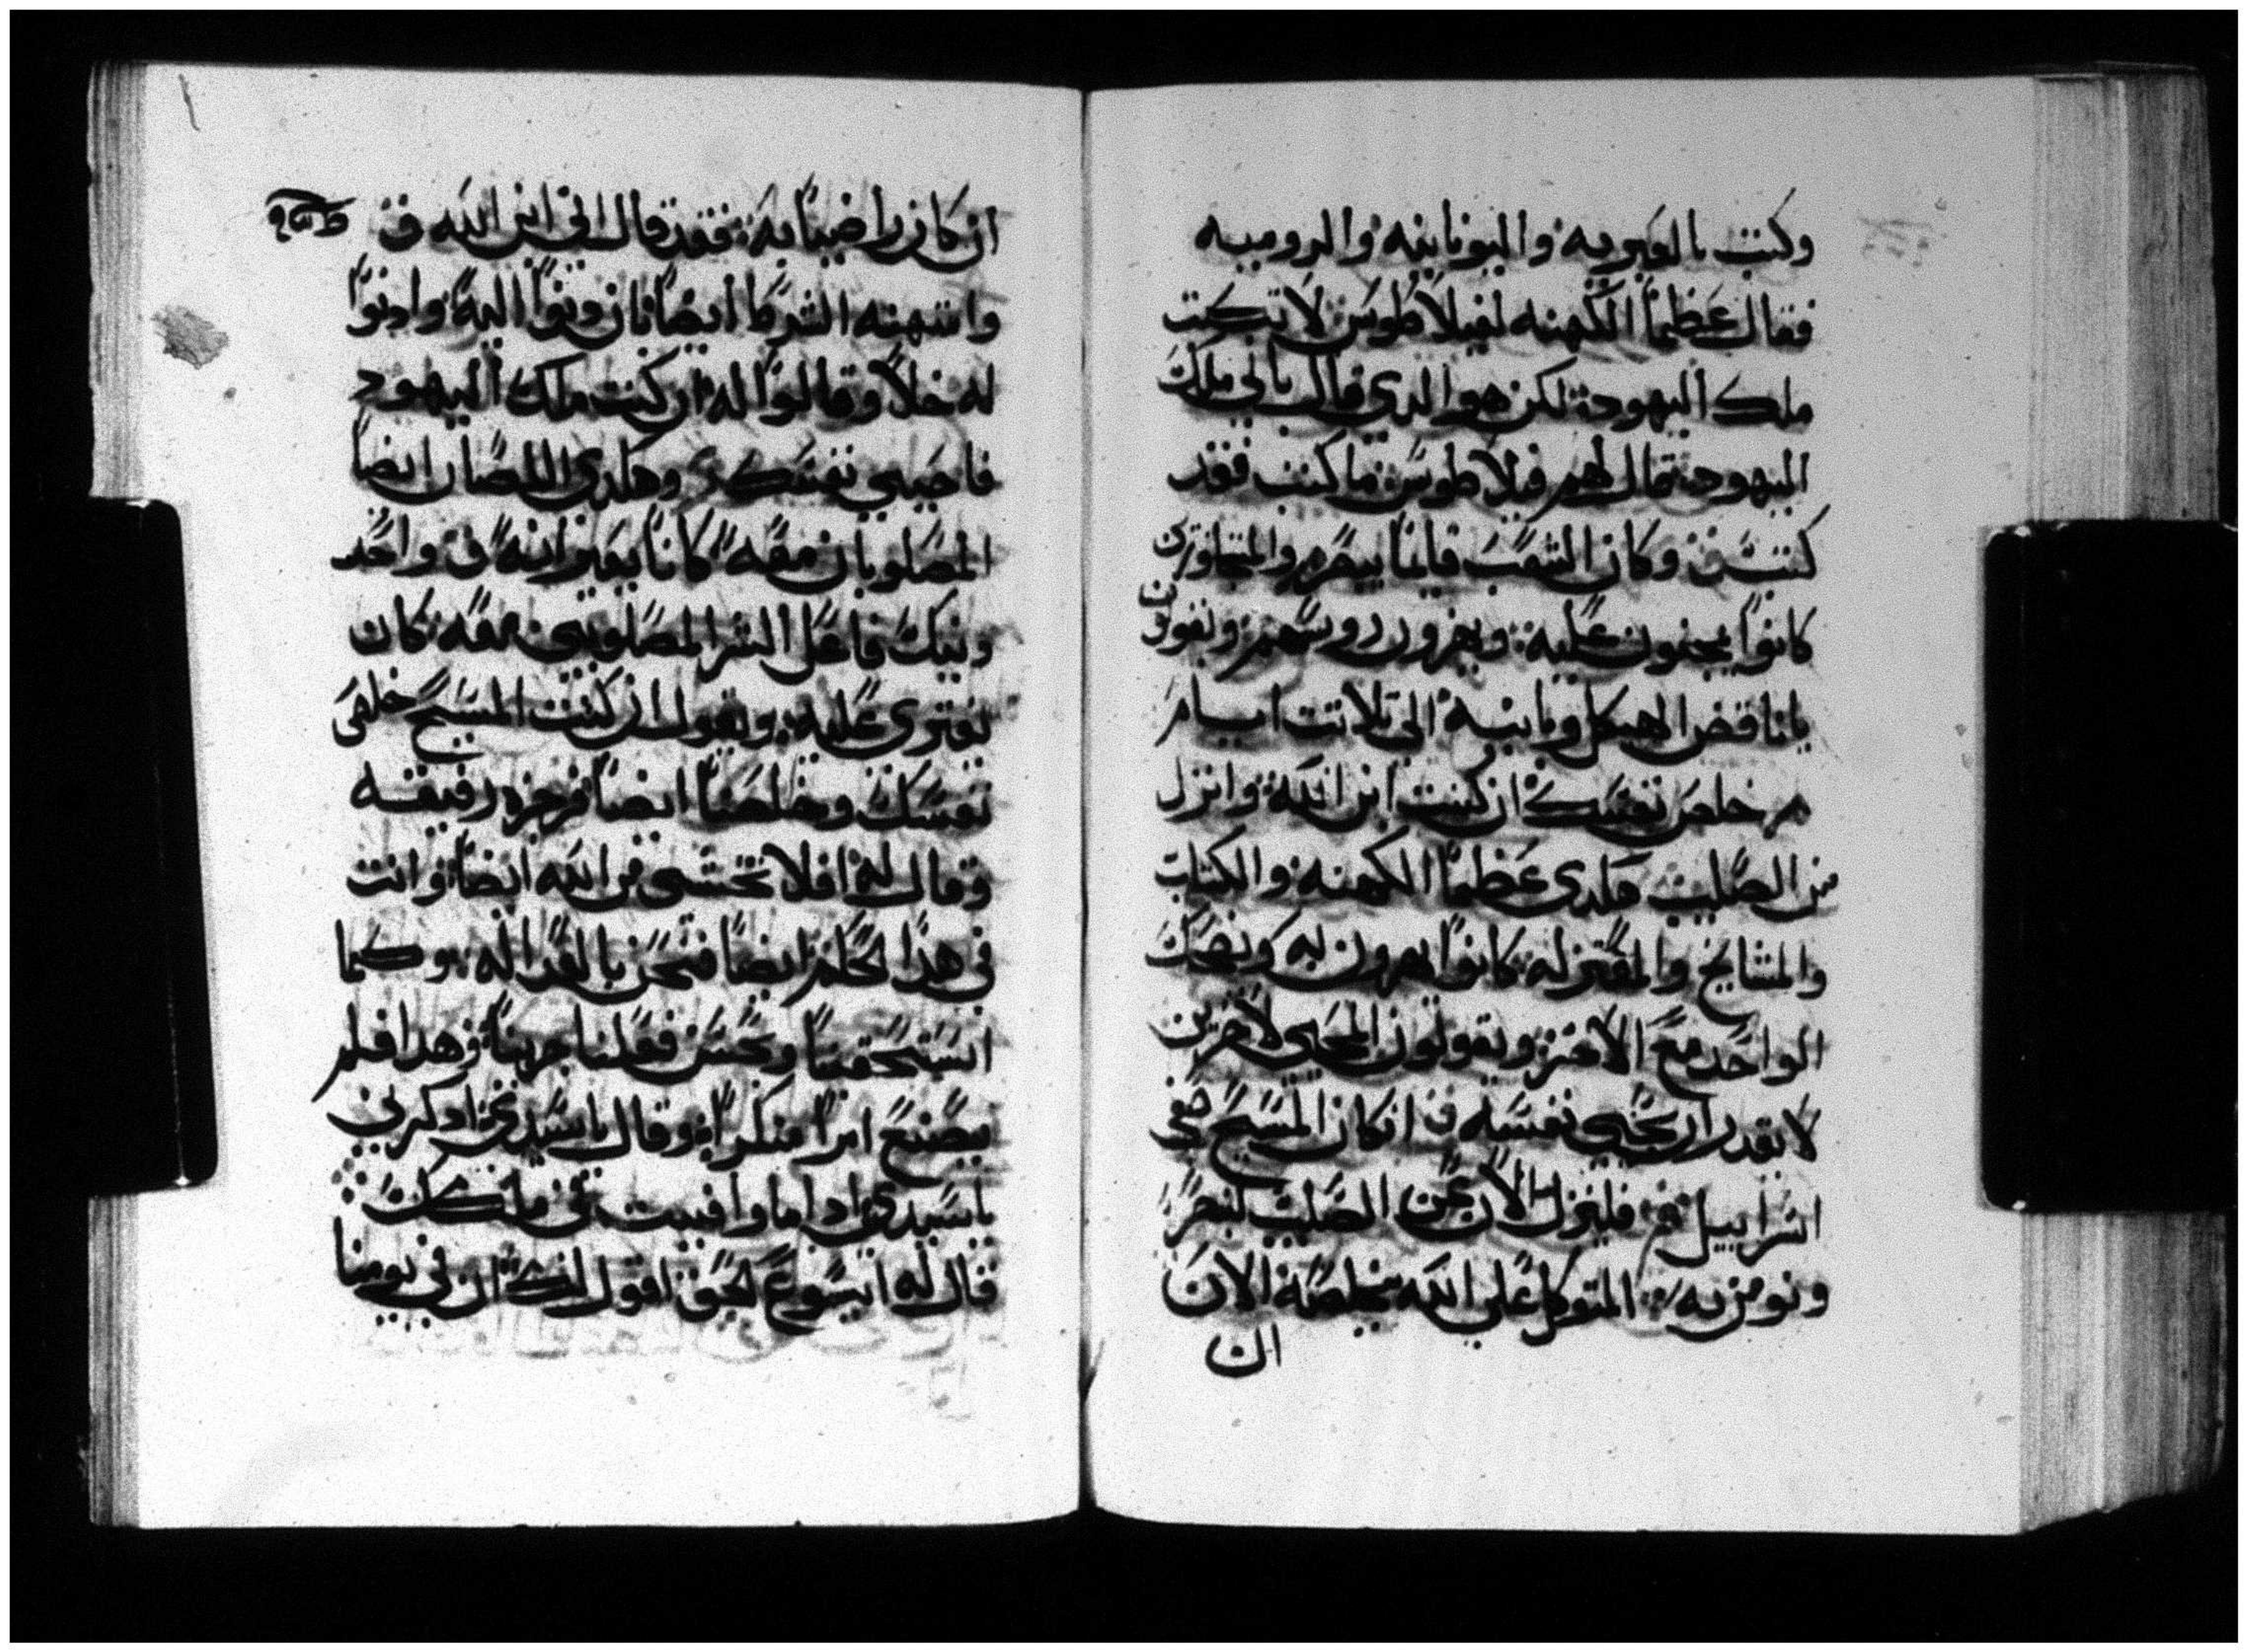 وكتب بالعبريه واليونانيه والروميه
فقال عظما الكهنه لفيلاطوس لا تكتب
ملك اليهود لكن هو الدي قال باني ملك
اليهود قال لهم فيلاطوس ما كتبت فقد
كتبت وكان الشعب قايما يبصره والمتجاوزين
كانوا يجنون عليه ويهزون رووسهم ويقولون
يا ناقض الهيكل وبانيه الى تلاتت ايام
خلص نفسك ان كنت ابن الله وانزل
من الصليب هكدي عظما الكهنه والكتاب
والمشايخ والمعتزله كانوا يهزون به ويضحك
الواحد مع الاخر ويقولون المحيي لاخرين
لا يقدر ان يحيي نفسه ان كان المسيح هو
اسراييل فلينزل الان عن الصليب لنبصر
ونومن به المتوكل على الله يخلصه الان
ان
ان كان راضيا به فقد قال اني ابن الله
وامتهنه الشرط ايضا بان دنوا اليه وادنوا
له خلا وقالوا له ان كنت ملك اليهود
فاحيي نفسك وهكدي اللصان ايضا
المصلوبان معه كانا يعيرانه واحد
دنيك فاعل الشر المصلوبين معه كان
يفتري عليه ويقول ان كنت المسيح خلص
نفسك وخلصنا ايضا فزجره رفيقه
وقال له افلا تخشى من الله ايضا وانت
في هدا الحكم ايضا فنحن بالعداله وكما
استحقينا وبحسب فعلنا جزينا وهدا فلم
يصنع امرا منكرا وقال يا سيدي ادكرني
يا سيدي ادا ما وافيت في ملكك
قال له ايسوع الحق اقول لك ان في يومنا